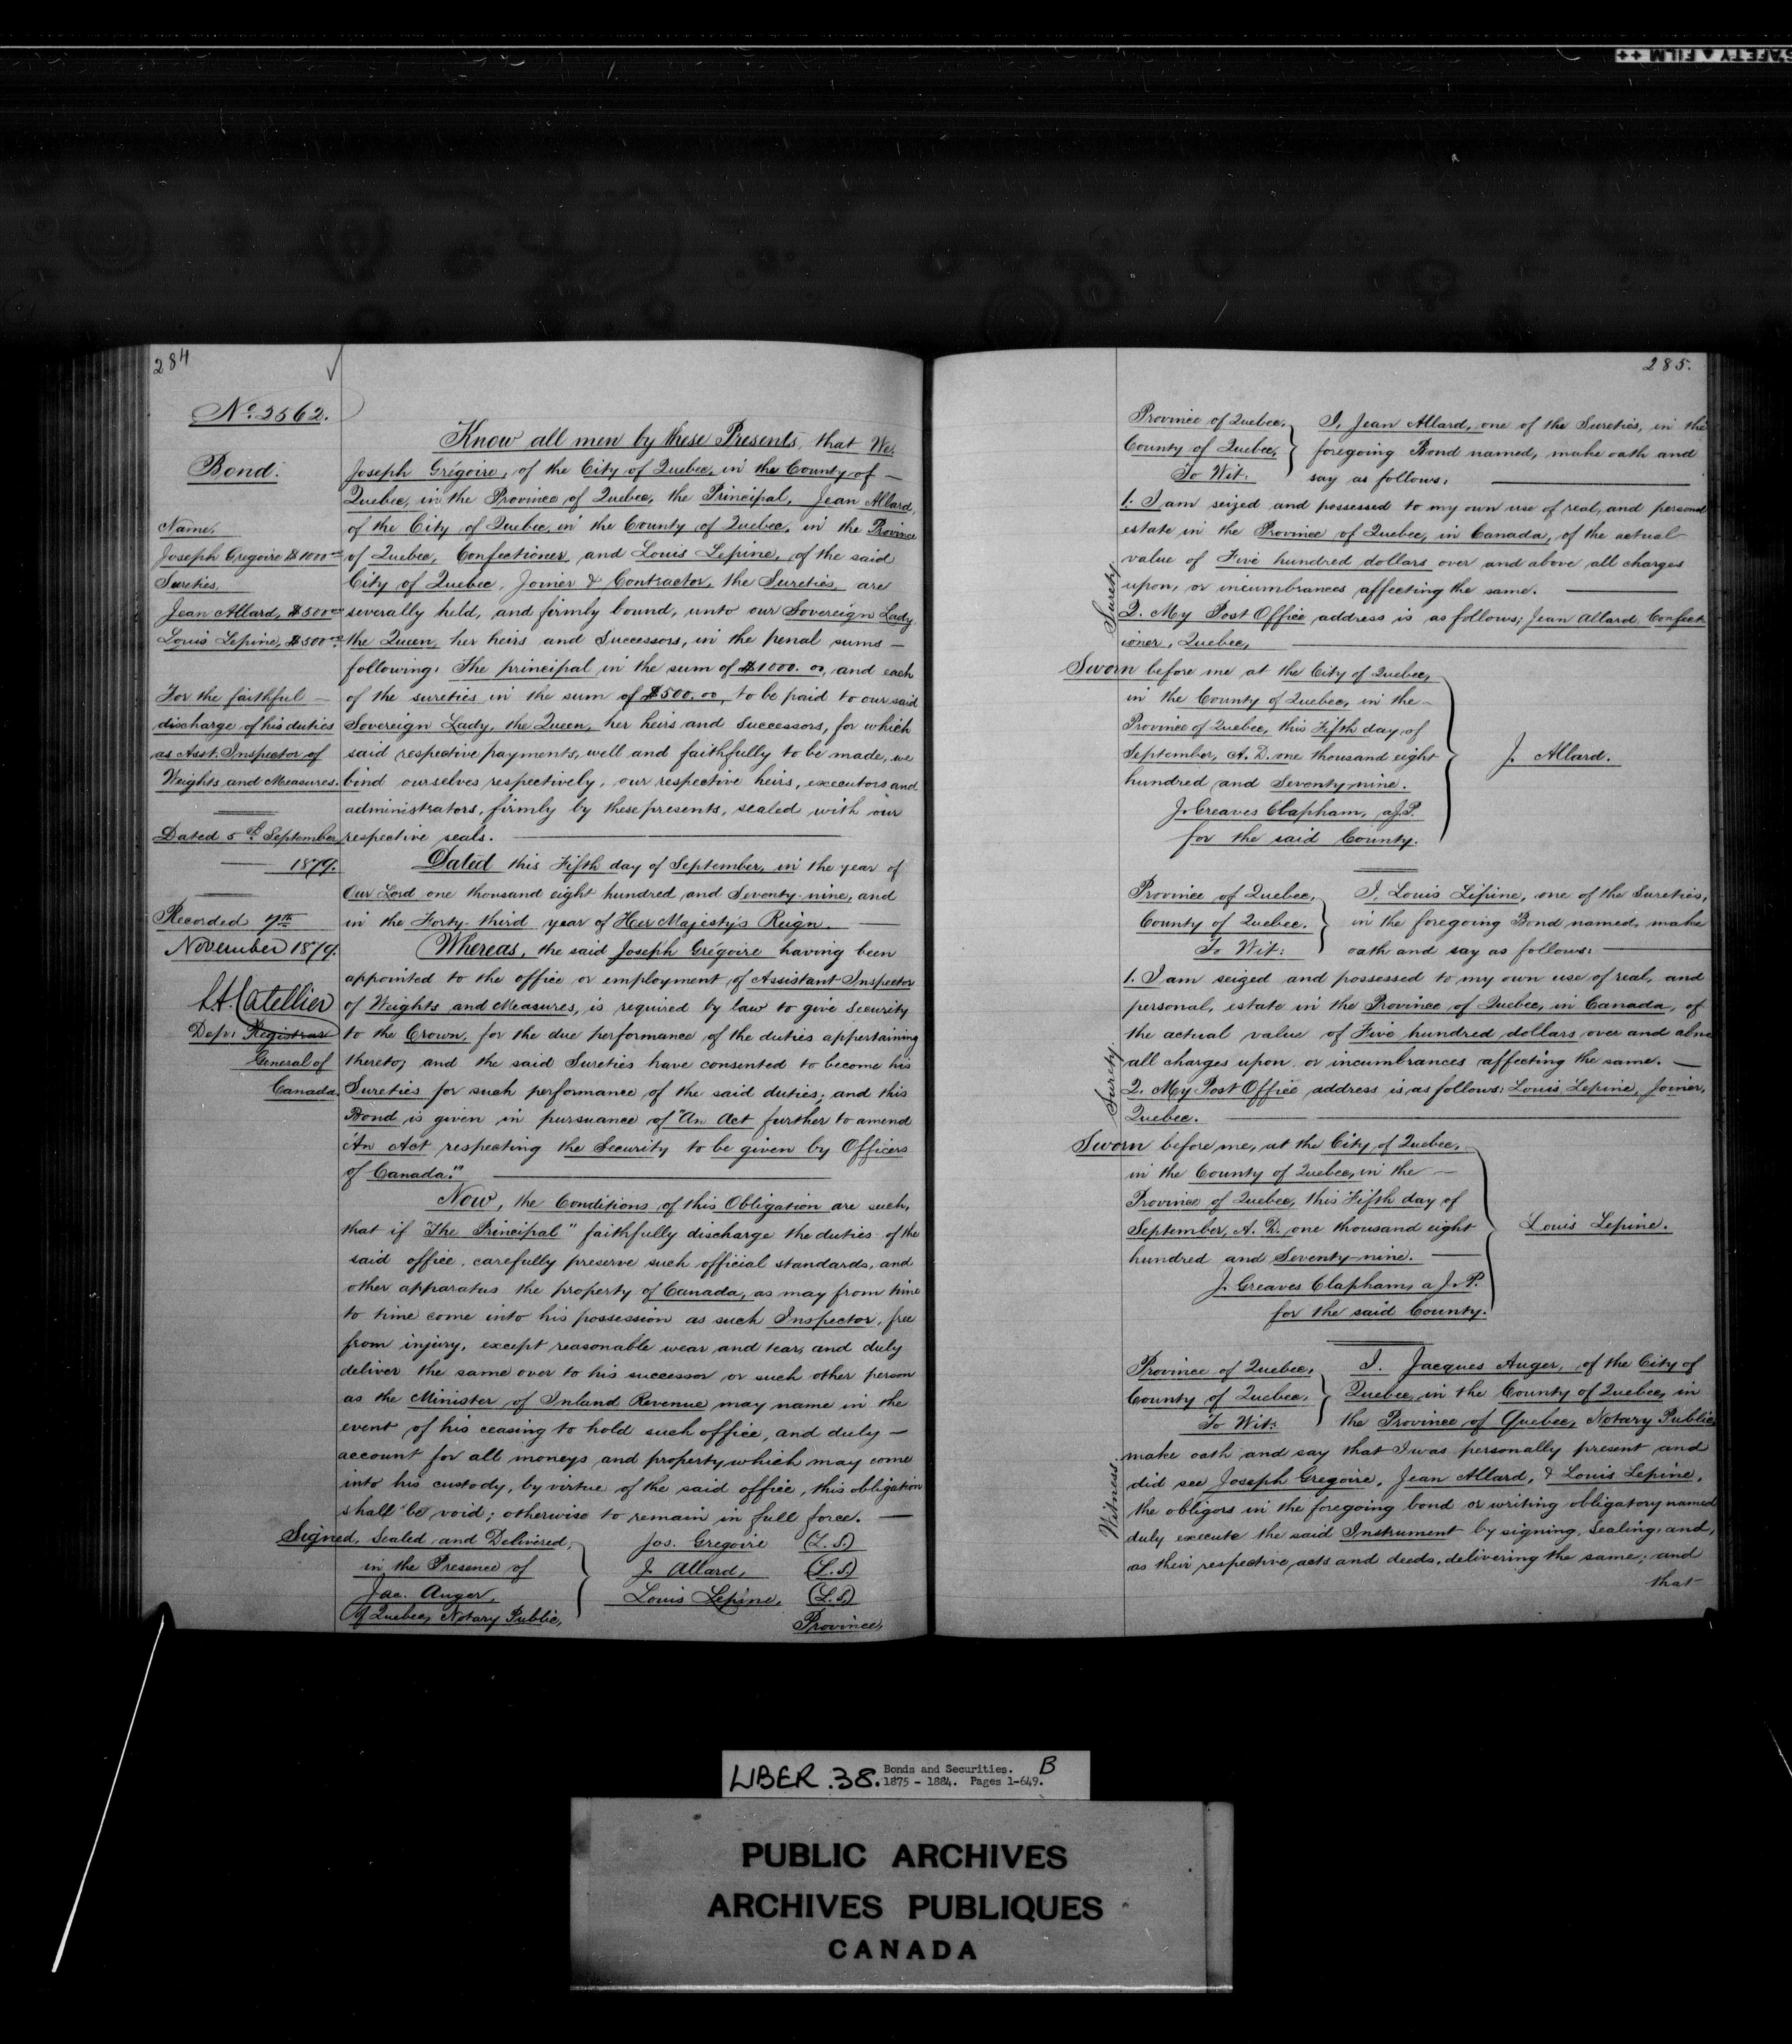 SAFETY▲FILM ++
284
No. 2562.
Bond.
Name,
Joseph Gregoire $1000.00
Sureties,
Jean Allard, $500.00
Louis Lepine, $500.00
For the faithful
discharge of his duties
as Asst. Inspector of
Weights and Measures.
Dated 5th September
1879.
Recorded 7th
November 1879.
L.A. Catellier
Depy. Registrar
General of
Canada.
Know all men by these Presents, that We,
Joseph Grégoire, of the City of Quebec, in the County of
Quebec, in the Province of Quebec, the Principal, Jean Allard,
of the City of Quebec, in the County of Quebec, in the Province
of Quebec, Confectioner, and Louis Lepine, of the said
City of Quebec, Joiner & Contractor, the Sureties, are
severally held, and firmly bound, unto our Sovereign Lady
the Queen, her heirs and Successors, in the penal sums
following: The principal in the sum of $1000.00, and each
of the sureties in the sum of $500.00, to be paid to our said
Sovereign Lady, the Queen, her heirs and Successors, for which
said respective payments, well and faithfully to be made, we
bind ourselves respectively, our respective heirs, executors and
administrators, firmly by these presents, sealed with our
respective seals.
Dated this Fifth day of September, in the year of
Our Lord one thousand eight hundred and Seventy-nine, and
in the Forty-third year of Her Majesty's Reign.
Whereas, the said Joseph Grégoire having been
appointed to the office or employment of Assistant Inspector
of Weights and Measures, is required by law to give Security
to the Crown, for the due performance of the duties appertaining
thereto; and the said Sureties have consented to become his
Sureties for such performance of the said duties; and this
Bond is given in pursuance of "An Act further to amend
"An Act respecting the Security to be given by Officers
of Canada."
Now, the Conditions of this Obligation are such,
that if "The Principal" faithfully discharge the duties of the
said office, carefully preserve such official standards, and
other apparatus the property of Canada, as may from time
to time come into his possession as such Inspector, free
from injury, except reasonable wear and tear, and duly
deliver the same over to his successor or such other person
as the Minister of Inland Revenue may name in the
event of his ceasing to hold such office, and duly
account for all moneys and property which may come
into his custody, by virtue of the said office, this obligation
shall be void; otherwise to remain in full force.
Signed, Sealed and Delivered,
in the Presence of
Jac. Auger,
of Quebec, Notary Public,
Jos. Gregoire (L.S.)
J. Allard, (L.S.)
Louis Lepine, (L.S.)
Province,
285.
Province of Quebec,
County of Quebec,
To Wit:
I, Jean Allard, one of the Sureties, in the
foregoing Bond named, make oath and
say as follows:
1. I am seized and possessed to my own use of real, and personal
estate in the Province of Quebec, in Canada, of the actual
value of Five hundred dollars over and above all charges
upon, or incumbrances affecting the same.
2. My Post Office address is as follows; Jean Allard, Confect-
ioner, Quebec,
Surety
Sworn before me at the City of Quebec,
in the County of Quebec, in the
Province of Quebec, this Fifth day of
September, A.D. one thousand eight
hundred and Seventy nine.
J. Greaves Clapham, a J.P.
for the said County.
J. Allard.
Province of Quebec,
County of Quebec.
To Wit:
I, Louis Lépine, one of the Sureties,
in the foregoing Bond named, make
oath and say as follows:
1. I am seized and possessed to my own use of real, and
personal, estate in the Province of Quebec, in Canada, of
the actual value of Five hundred dollars over and above
all charges upon or incumbrances affecting the same.
2. My Post Office address is as follows: Louis Lepine, Joiner,
Quebec.
Surety.
Sworn before me, at the City of Quebec,
in the County of Quebec, in the
Province of Quebec, this Fifth day of
September, A.D. one thousand eight
hundred and Seventy-nine.
J. Greaves Clapham, a J.P.
for the said County.
Louis Lepine.
Province of Quebec,
County of Quebec,
To Wit:
I. Jacques Auger, of the City of
Quebec, in the County of Quebec, in
the Province of Quebec, Notary Public
make oath and say that I was personally present and
did see Joseph Gregoire, Jean Allard, & Louis Lepine,
the obligors in the foregoing bond or writing obligatory named
duly execute the said Instrument by signing, sealing, and,
as their respective acts and deeds, delivering the same; and
that
Witness.
LIBER. 38. Bonds and Securities. B
1875 - 1884. Pages 1-649.
PUBLIC ARCHIVES
ARCHIVES PUBLIQUES
CANADA